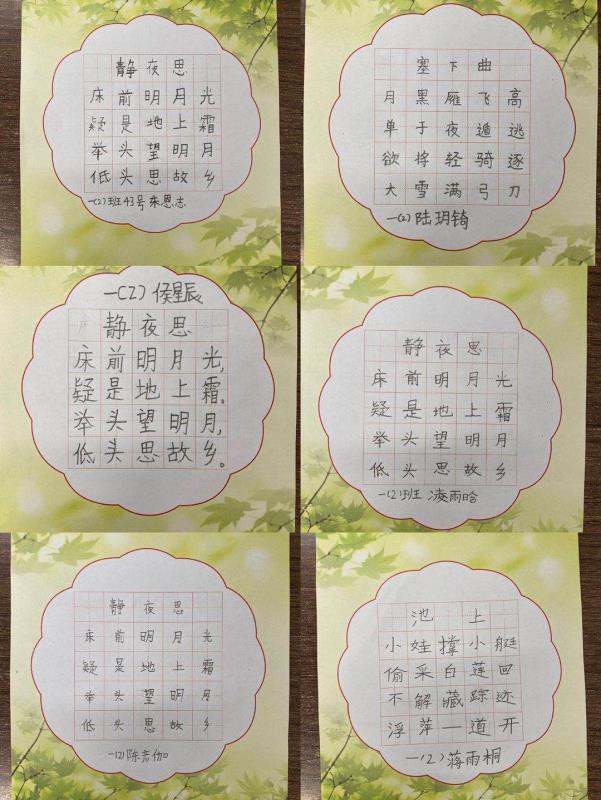 静夜思
床前明月光
疑是地上霜
举头望明月
低头思故乡
一(2)班43号 朱恩志
塞下曲
月黑雁飞高
单于夜遁逃
欲将轻骑逐
大雪满弓刀
一(2) 陆玥锜
一(2) 侯星辰
静夜思
床前明月光,
疑是地上霜。
举头望明月,
低头思故乡。
静夜思
床前明月光
疑是地上霜
举头望明月
低头思故乡
一(2)班 凌雨晗
静夜思
床前明月光
疑是地上霜
举头望明月
低头思故乡
一(2) 陈言伽
池上
小娃撑小艇
偷采白莲回
不解藏踪迹
浮萍一道开
一(2) 蒋雨桐